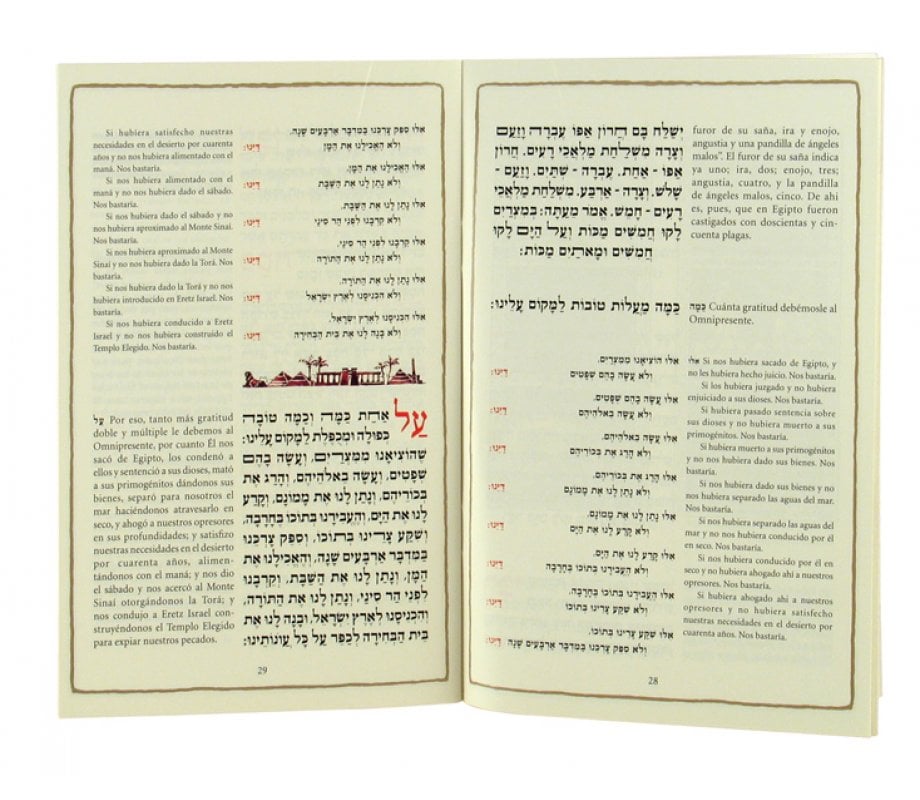 furor de su saña, ira y enojo,
angustia y una pandilla de ángeles
malos”. El furor de su saña indica
ya uno; ira, dos; enojo, tres;
angustia, cuatro, y la pandilla
de ángeles malos, cinco. De ahí
es, pues, que en Egipto fueron
castigados con doscientas y cin-
cuenta plagas.
יְשַׁלַּח בָּם חֲרוֹן אַפּוֹ עֶבְרָה וָזַעַם
וְצָרָה מִשְׁלַחַת מַלְאֲכֵי רָעִים. חֲרוֹן
אַפּוֹ - אַחַת. עֶבְרָה - שְׁתַּיִם. וָזַעַם -
שָׁלֹשׁ. וְצָרָה - אַרְבַּע. מִשְׁלַחַת מַלְאֲכֵי
רָעִים - חָמֵשׁ. אֱמֹר מֵעַתָּה: בְּמִצְרַיִם
לָקוּ חֲמִשִּׁים מַכּוֹת וְעַל הַיָּם לָקוּ
חֲמִשִּׁים וּמָאתַיִם מַכּוֹת:
כַּמָּה Cuánta gratitud debémosle al
Omnipresente.
כַּמָּה מַעֲלוֹת טוֹבוֹת לַמָּקוֹם עָלֵינוּ:
אלו Si nos hubiera sacado de Egipto, y
no les hubiera hecho juicio. Nos bastaría.
Si los hubiera juzgado y no hubiera
enjuiciado a sus dioses. Nos bastaría.
Si hubiera pasado sentencia sobre
sus dioses y no hubiera muerto a sus
primogénitos. Nos bastaría.
Si hubiera muerto a sus primogénitos
y no nos hubiera dado sus bienes. Nos
bastaría.
Si nos hubiera dado sus bienes y no
nos hubiera separado las aguas del mar.
Nos bastaría.
Si nos hubiera separado las aguas del
mar y no nos hubiera conducido por él
en seco. Nos bastaría.
Si nos hubiera conducido por él en
seco y no hubiera ahogado ahí a nuestros
opresores. Nos bastaría.
Si hubiera ahogado ahí a nuestros
opresores y no hubiera satisfecho
nuestras necesidades en el desierto por
cuarenta años. Nos bastaría.
אִלּוּ הוֹצִיאָנוּ מִמִּצְרַיִם.
וְלֹא עָשָׂה בָהֶם שְׁפָטִים דַּיֵּנוּ:
אִלּוּ עָשָׂה בָהֶם שְׁפָטִים.
וְלֹא עָשָׂה בֵאלֹהֵיהֶם דַּיֵּנוּ:
אִלּוּ עָשָׂה בֵאלֹהֵיהֶם.
וְלֹא הָרַג אֶת בְּכוֹרֵיהֶם דַּיֵּנוּ:
אִלּוּ הָרַג אֶת בְּכוֹרֵיהֶם.
וְלֹא נָתַן לָנוּ אֶת מָמוֹנָם דַּיֵּנוּ:
אִלּוּ נָתַן לָנוּ אֶת מָמוֹנָם.
וְלֹא קָרַע לָנוּ אֶת הַיָּם דַּיֵּנוּ:
אִלּוּ קָרַע לָנוּ אֶת הַיָּם.
וְלֹא הֶעֱבִירָנוּ בְתוֹכוֹ בֶּחָרָבָה דַּיֵּנוּ:
אִלּוּ הֶעֱבִירָנוּ בְתוֹכוֹ בֶּחָרָבָה.
וְלֹא שִׁקַּע צָרֵינוּ בְתוֹכוֹ דַּיֵּנוּ:
אִלּוּ שִׁקַּע צָרֵינוּ בְתוֹכוֹ.
וְלֹא סִפֵּק צָרְכֵּנוּ בַּמִּדְבָּר אַרְבָּעִים שָׁנָה דַּיֵּנוּ:
28
אִלּוּ סִפֵּק צָרְכֵּנוּ בַּמִּדְבָּר אַרְבָּעִים שָׁנָה.
וְלֹא הֶאֱכִילָנוּ אֶת הַמָּן דַּיֵּנוּ:
אִלּוּ הֶאֱכִילָנוּ אֶת הַמָּן.
וְלֹא נָתַן לָנוּ אֶת הַשַּׁבָּת דַּיֵּנוּ:
אִלּוּ נָתַן לָנוּ אֶת הַשַּׁבָּת.
וְלֹא קֵרְבָנוּ לִפְנֵי הַר סִינַי דַּיֵּנוּ:
אִלּוּ קֵרְבָנוּ לִפְנֵי הַר סִינַי.
וְלֹא נָתַן לָנוּ אֶת הַתּוֹרָה דַּיֵּנוּ:
אִלּוּ נָתַן לָנוּ אֶת הַתּוֹרָה.
וְלֹא הִכְנִיסָנוּ לְאֶרֶץ יִשְׂרָאֵל דַּיֵּנוּ:
אִלּוּ הִכְנִיסָנוּ לְאֶרֶץ יִשְׂרָאֵל.
וְלֹא בָנָה לָנוּ אֶת בֵּית הַבְּחִירָה דַּיֵּנוּ:
Si hubiera satisfecho nuestras
necesidades en el desierto por cuarenta
años y no nos hubiera alimentado con el
maná. Nos bastaría.
Si nos hubiera alimentado con el
maná y no nos hubiera dado el sábado.
Nos bastaría.
Si nos hubiera dado el sábado y no
nos hubiera aproximado al Monte Sinaí.
Nos bastaría.
Si nos hubiera aproximado al Monte
Sinaí y no nos hubiera dado la Torá. Nos
bastaría.
Si nos hubiera dado la Torá y no nos
hubiera introducido en Eretz Israel. Nos
bastaría.
Si nos hubiera conducido a Eretz
Israel y no nos hubiera construido el
Templo Elegido. Nos bastaría.
עַל אַחַת כַּמָּה וְכַמָּה טוֹבָה
כְּפוּלָה וּמְכֻפֶּלֶת לַמָּקוֹם עָלֵינוּ:
שֶׁהוֹצִיאָנוּ מִמִּצְרַיִם, וְעָשָׂה בָהֶם
שְׁפָטִים, וְעָשָׂה בֵאלֹהֵיהֶם, וְהָרַג אֶת
בְּכוֹרֵיהֶם, וְנָתַן לָנוּ אֶת מָמוֹנָם, וְקָרַע
לָנוּ אֶת הַיָּם, וְהֶעֱבִירָנוּ בְתוֹכוֹ בֶּחָרָבָה,
וְשִׁקַּע צָרֵינוּ בְּתוֹכוֹ, וְסִפֵּק צָרְכֵּנוּ
בַּמִּדְבָּר אַרְבָּעִים שָׁנָה, וְהֶאֱכִילָנוּ אֶת
הַמָּן, וְנָתַן לָנוּ אֶת הַשַּׁבָּת, וְקֵרְבָנוּ
לִפְנֵי הַר סִינַי, וְנָתַן לָנוּ אֶת הַתּוֹרָה,
וְהִכְנִיסָנוּ לְאֶרֶץ יִשְׂרָאֵל, וּבָנָה לָנוּ אֶת
בֵּית הַבְּחִירָה לְכַפֵּר עַל כָּל עֲוֹנוֹתֵינוּ:
עַל Por eso, tanto más gratitud
doble y múltiple le debemos al
Omnipresente, por cuanto Él nos
sacó de Egipto, los condenó a
ellos y sentenció a sus dioses, mató
a sus primogénitos dándonos sus
bienes, separó para nosotros el
mar haciéndonos atravesarlo en
seco, y ahogó a nuestros opresores
en sus profundidades; y satisfizo
nuestras necesidades en el desierto
por cuarenta años, alimen-
tándonos con el maná; y nos dio
el sábado y nos acercó al Monte
Sinaí otorgándonos la Torá; y
nos condujo a Eretz Israel con-
struyéndonos el Templo Elegido
para expiar nuestros pecados.
29